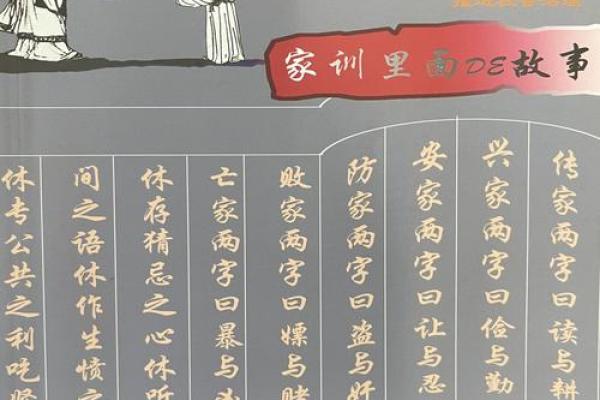 家训里面DE故事
传家两字曰读与耕
兴家两字曰俭与勤
安家两字曰让与忍
防家两字曰盗与奸
败家两字曰嫖与赌
亡家两字曰暴与凶
休存猜忌之心休听
间之语休作生愤
休专公共之利吃紧